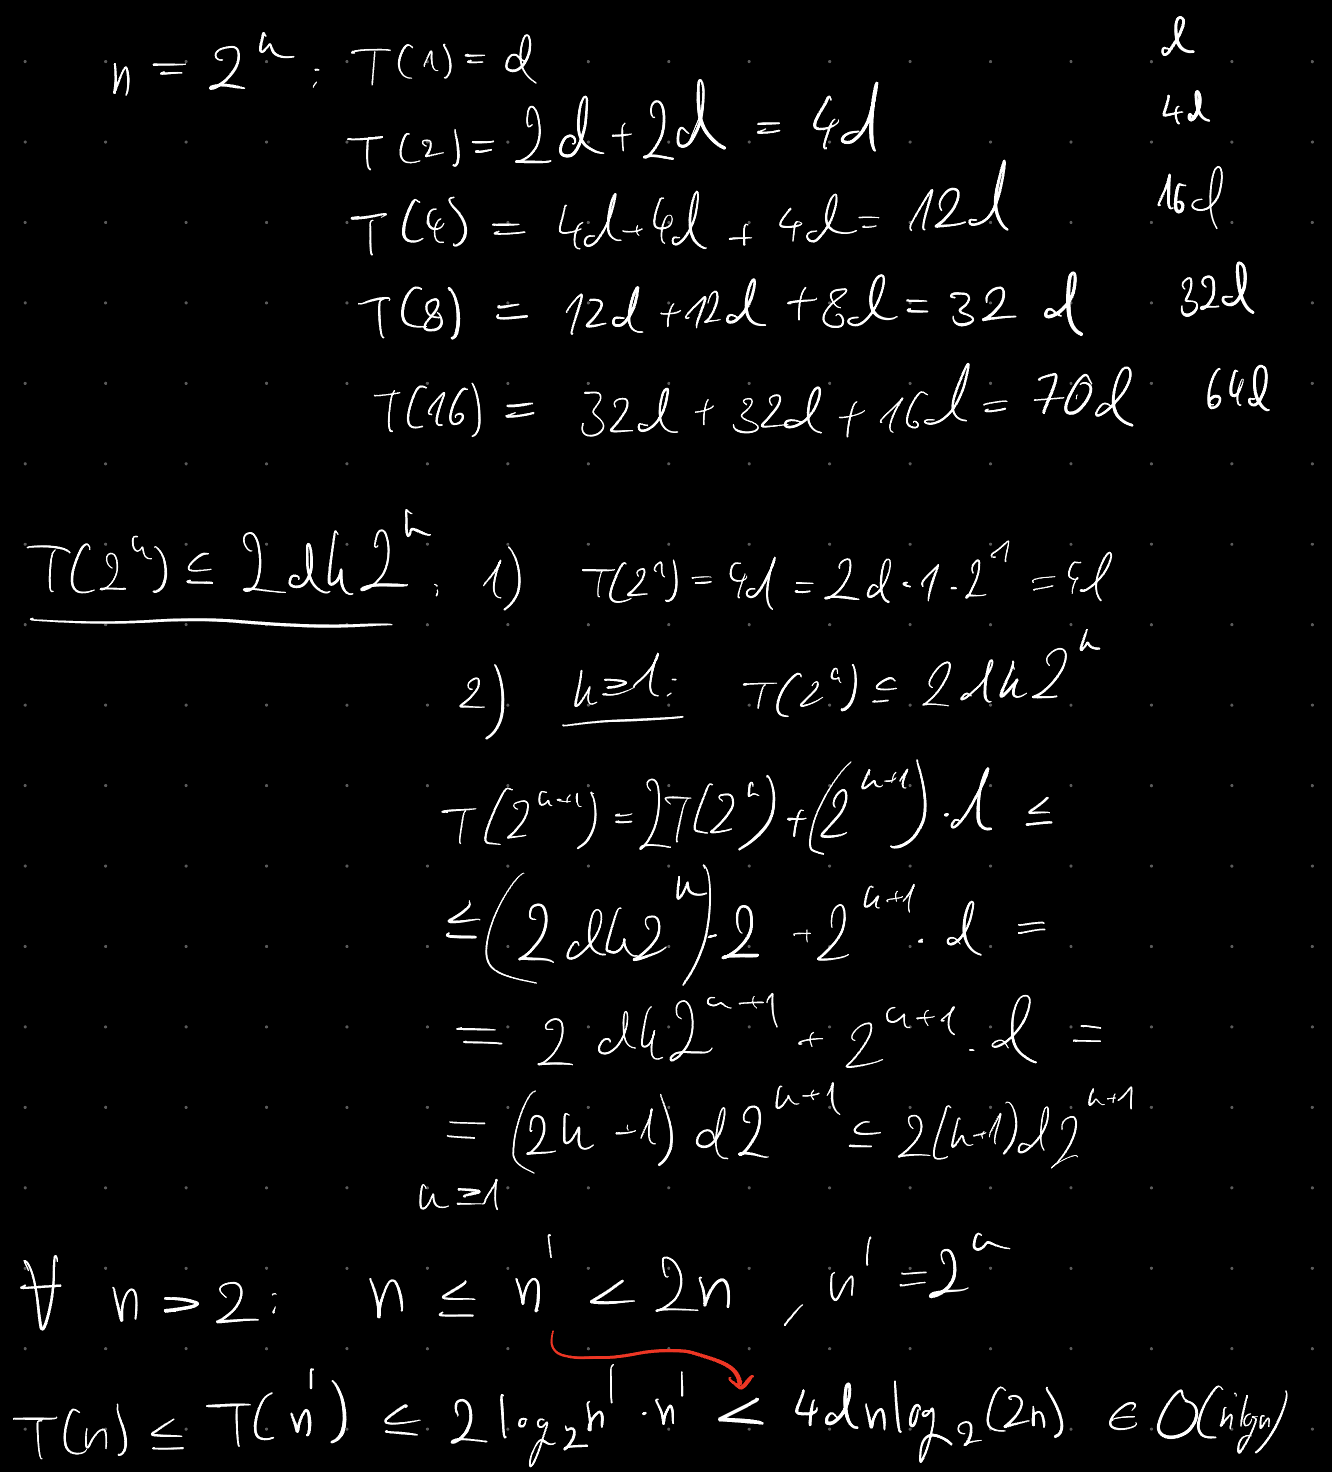 n = 2^k : T(1) = d d
T(2) = 2d + 2d = 4d 4d
T(4) = 4d + 4d + 4d = 12d 16d
T(8) = 12d + 12d + 8d = 32 d 32d
T(16) = 32d + 32d + 16d = 70d 64d
T(2^k) ≤ 2dk2^k : 1) T(2^1) = 4d = 2d · 1 · 2^1 = 4d
2) k ≥ 1: T(2^k) ≤ 2dk2^k
T(2^{k+1}) = 2T(2^k) + (2^{k+1}) · d ≤
≤ (2dk2^k) · 2 + 2^{k+1} · d =
= 2 dk2^{k+1} + 2^{k+1} · d =
= (2k + 1) d2^{k+1} ≤ 2(k+1)d2^{k+1}
k ≥ 1
∀ n > 2 : n ≤ n' < 2n , n' = 2^k
T(n) ≤ T(n') ≤ 2 log_2 n' · n' < 4dn log_2 (2n) ∈ O(n log n)